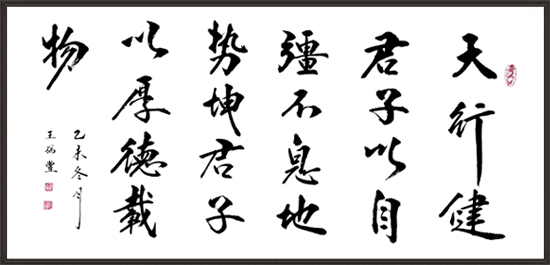 天行健
君子以自
彊不息地
势坤君子
以厚德載
物
乙未冬月
王